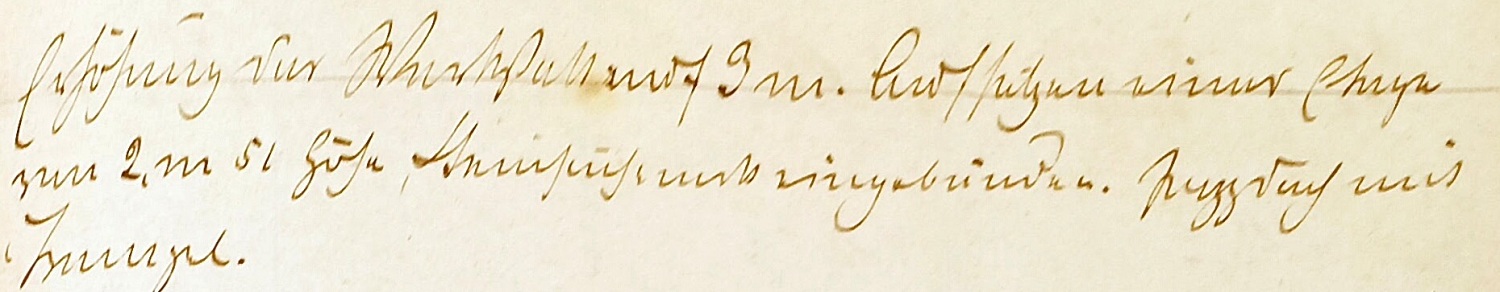 Erhöhung der Werkstatt auf 3 m. Aufsetzen einer Etage
von 2, m 51 Höhe, eingebunden. Pappdach mit